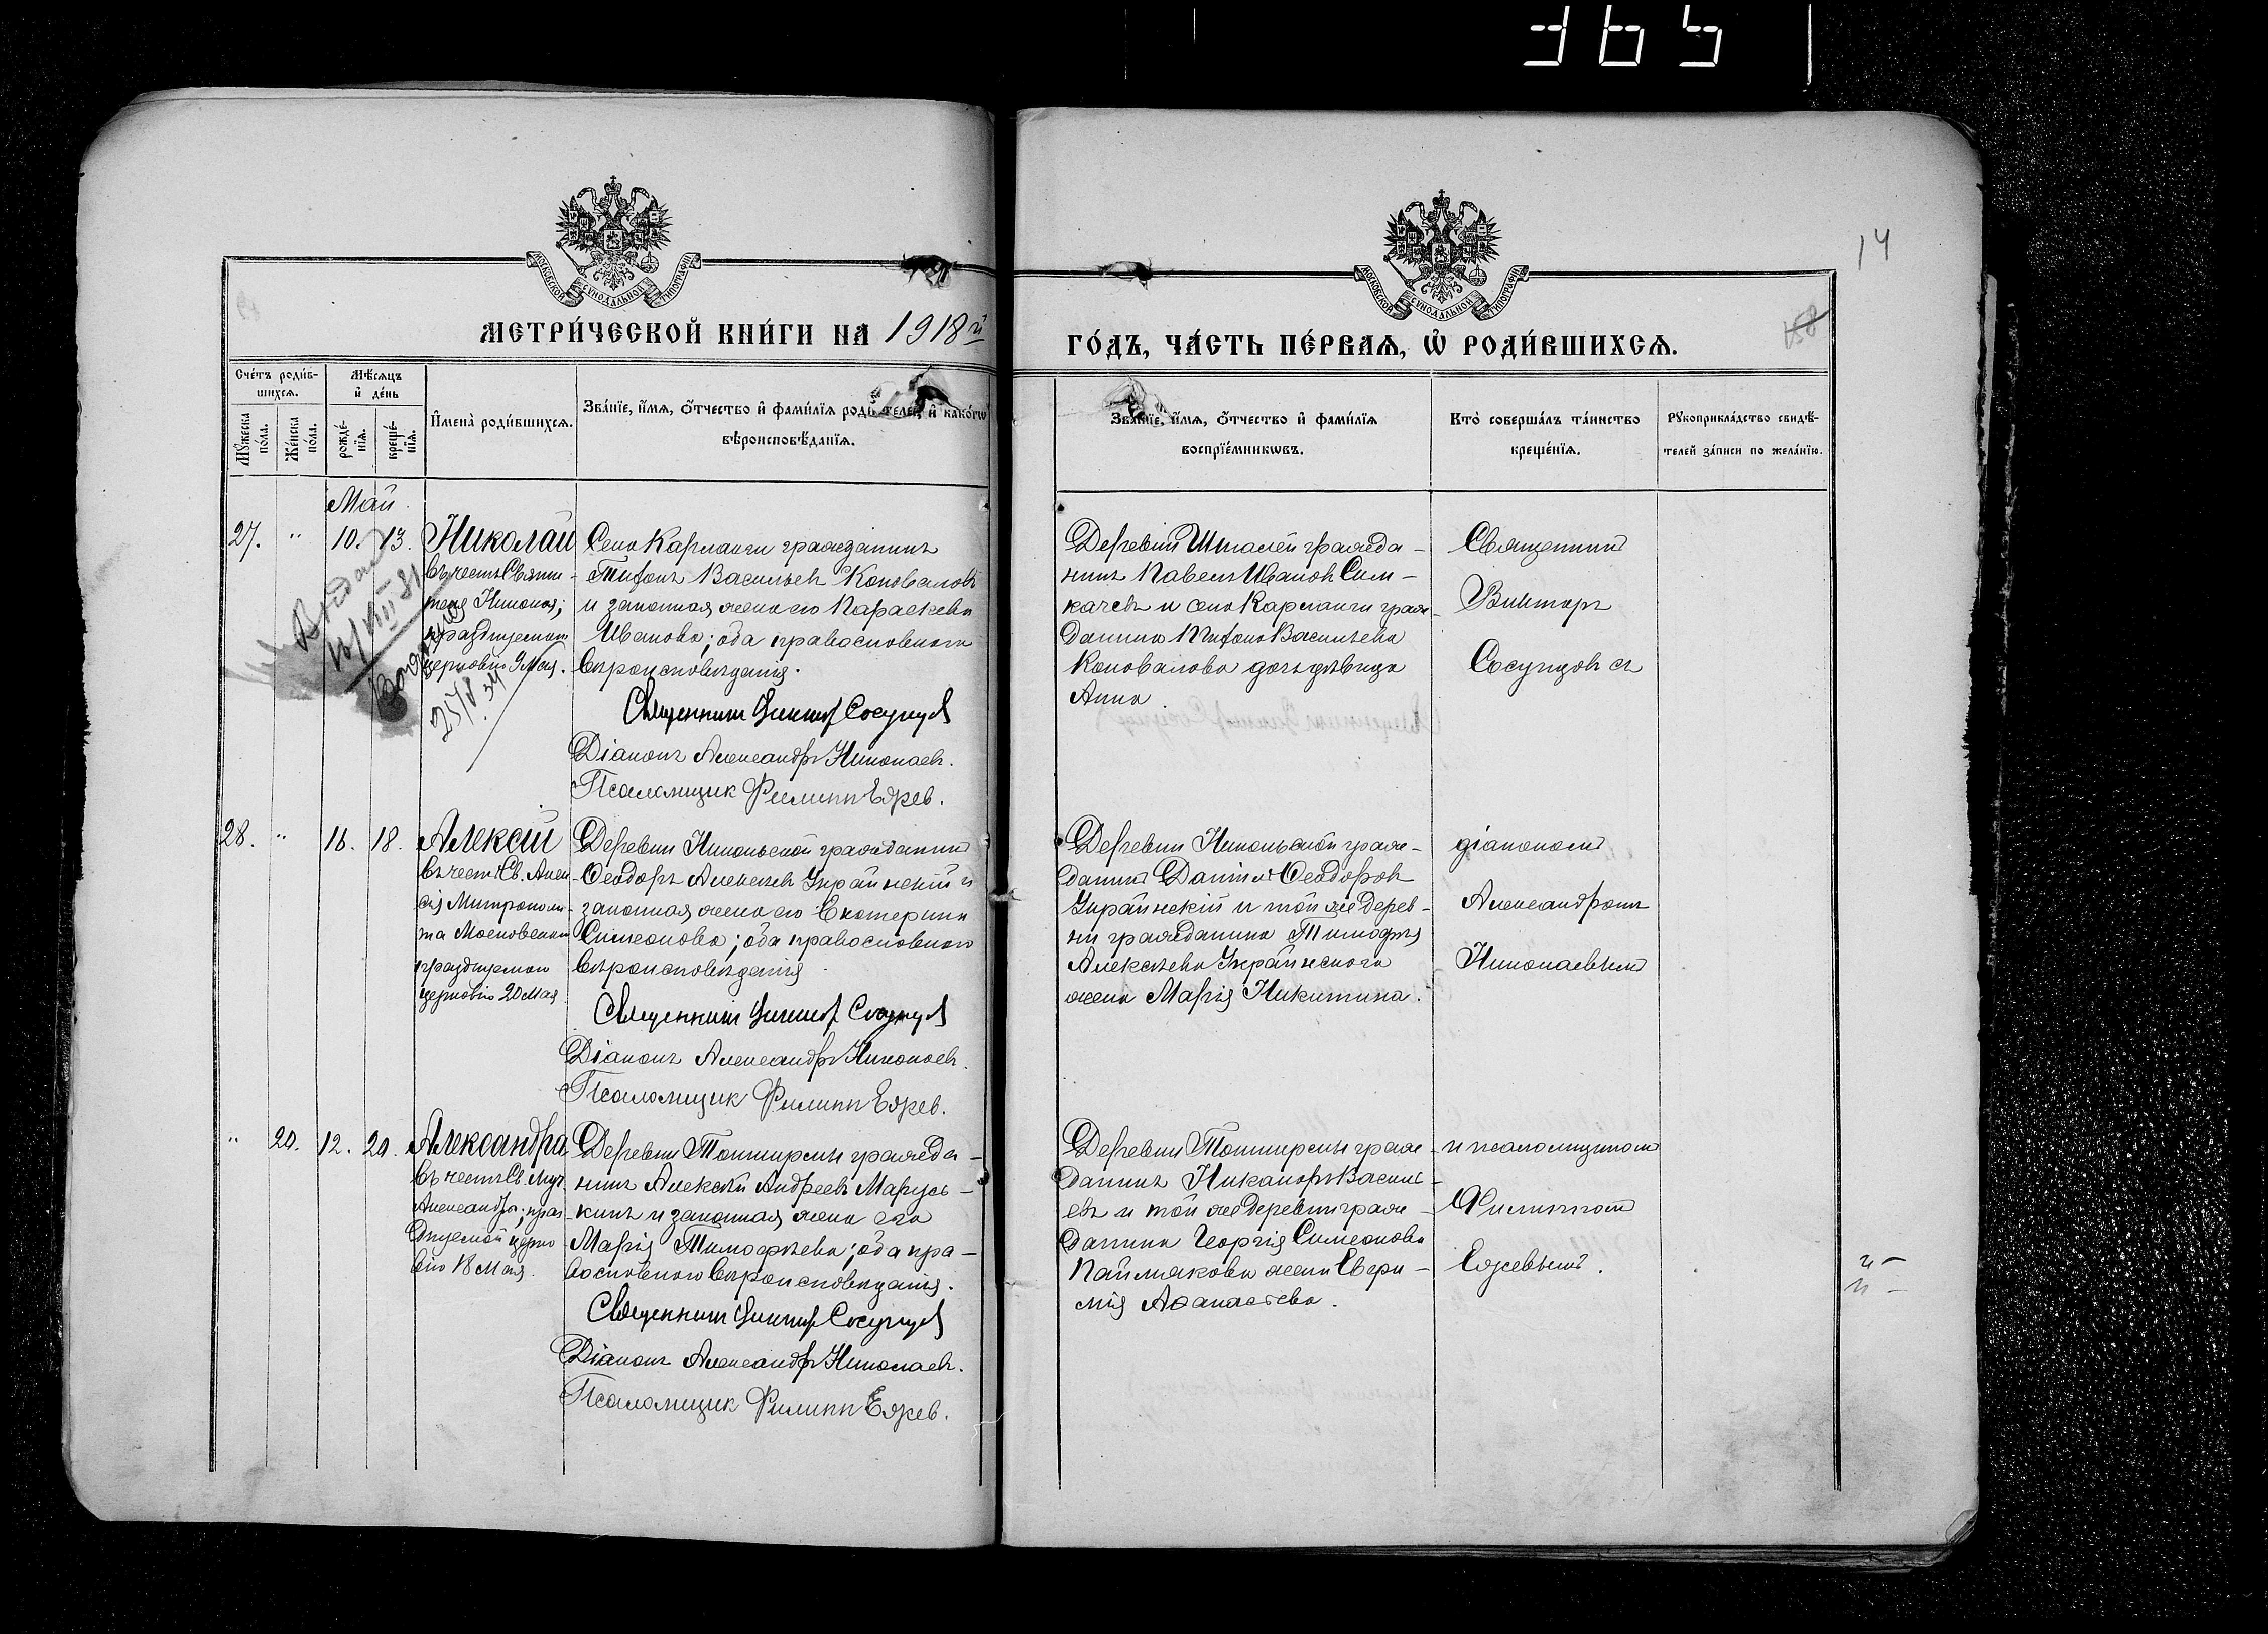 365
14
158
МОСКОВСКОЙ СѴНОДАЛЬНОЙ ТИПОГРАФІИ
МОСКОВСКОЙ СѴНОДАЛЬНОЙ ТИПОГРАФІИ
МЕТРИ́ЧЕСКОЙ КНИ́ГИ НА 1918й
ГО́ДЪ, ЧА́СТЬ ПЕ́РВАЯ, Ѡ РОДИ́ВШИХСЯ.
Сче́тъ роди́в-
шихся.
Мѣ́сяцъ
и де́нь
Мꙋ́жеска
по́ла.
Же́нска
по́ла.
рожде́-
нїя.
креще́-
нїя.
И҆мена̀ роди́вшихся.
Зва́нїе, и҆́мя, ѻ҆́тчество и҆ фами́лїя роди́телей, и҆ како́гѡ
вѣроисповѣ́данїя.
Зва́нїе, и҆́мя, ѻ҆́тчество и҆ фами́лїя
воспрїе́мникѡвъ.
Кто̀ соверша́лъ та́инство
креще́нїя.
Рꙋкоприкла́дство свидѣ́-
телей за́писи по жела́нїю.
Май.
27. " 10. 13. Николай
въ честь Святи-
теля Николая;
празднуемаго
церковію 9 Мая.
Села Карланги гражданинъ
Тифонъ Васильевъ Коноваловъ
и законная жена его Параскева
Иванова; оба православнаго
вѣроисповѣданія.
Священникъ Викторъ Сосунцовъ
Діаконъ Александръ Николаевъ.
Псаломщик Филипп Езрев.
Деревни Шталей гражда-
нинъ Павелъ Ивановъ Сим-
качевъ и села Карланги граж-
данина Тифона Васильева
Коновалова дочь дѣвица
Анна.
Священникъ
Викторъ
Сосунцовъ съ
Выдан
VIII 81
25/V 34
28. " 16. 18. Алексій
въ честь Св. Алек-
сія Митрополи-
та Московскаго
празднуемаго
церковію 20 Мая.
Деревни Никольской гражданинъ
Ѳеодоръ Алексѣевъ Украинскій и
законная жена его Екатерина
Симеонова; оба православнаго
вѣроисповѣданія.
Священникъ Викторъ Сосунцовъ
Діаконъ Александръ Николаевъ.
Псаломщик Филипп Езрев.
Деревни Никольской граж-
данинъ Даніилъ Ѳеодоровъ
Украинскій и той же дерев-
ни гражданина Тимоѳея
Алексѣева Украинскаго
жена Марія Никитина.
діакономъ
Александромъ
Николаевымъ
" 20. 12. 20. Александра
въ честь Св. муч.
Александры; праз-
днуемой церко-
вію 18 Мая.
Деревни Топширмы гражда-
нинъ Алексѣй Андреевъ Марусь-
кинъ и законная жена его
Марія Тимоѳеева; оба пра-
вославнаго вѣроисповѣданія.
Священникъ Викторъ Сосунцовъ
Діаконъ Александръ Николаевъ.
Псаломщик Филипп Езрев.
Деревни Топширмы граж-
данинъ Никаноръ Василь-
евъ и той же деревни граж-
данина Георгія Симеонова
Паймякова жена Евфи-
мія Аѳанасіева.
и псаломщикомъ
Филиппомъ
Езревымъ.